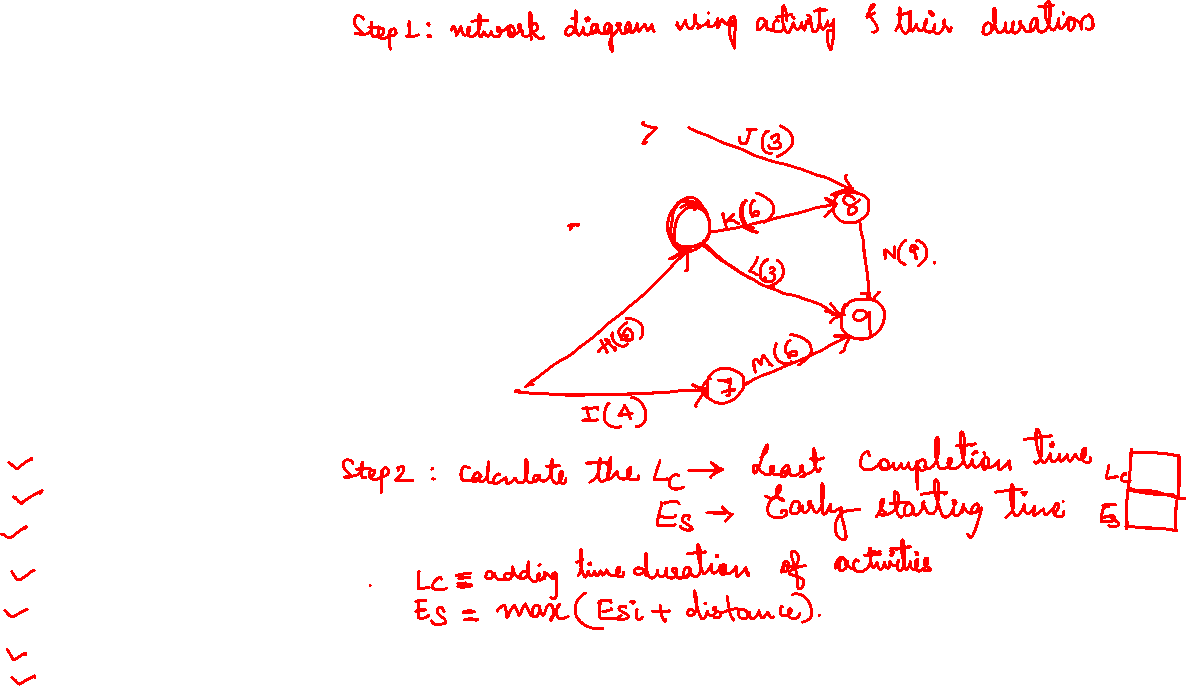 Step 1: network diagram using activity & their durations
J(3)
K(6)
8
N(9).
L(3)
9
H(5)
M(6)
7
I(4)
Step 2: calculate the LC → Least Completion time
LC
ES → Early starting time
ES
LC ≡ adding time duration of activities
ES = max (Esi + distance).